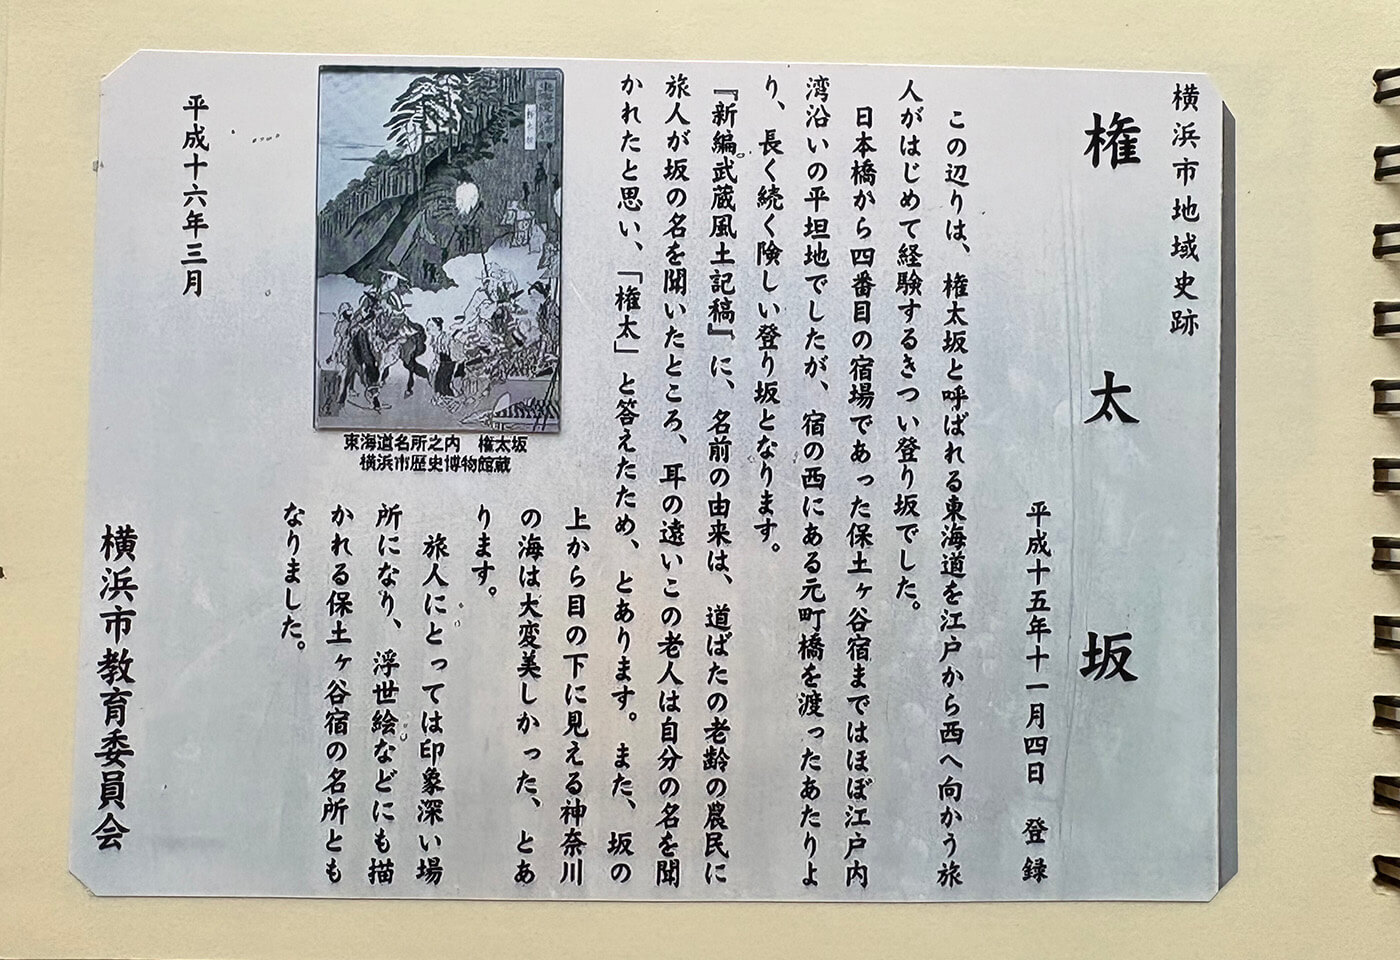 横浜市地域史跡
権太坂
平成十五年十一月四日　登録
この辺りは、権太坂と呼ばれる東海道を江戸から西へ向かう旅
人がはじめて経験するきつい登り坂でした。
日本橋から四番目の宿場であった保土ヶ谷宿まではほぼ江戸内
湾沿いの平坦地でしたが、宿の西にある元町橋を渡ったあたりよ
り、長く続く険しい登り坂となります。
『新編武蔵風土記稿』に、名前の由来は、道ばたの老齢の農民に
旅人が坂の名を聞いたところ、耳の遠いこの老人は自分の名を聞
かれたと思い、「権太」と答えたため、とあります。また、坂の
上から目の下に見える神奈川
の海は大変美しかった、とあ
ります。
旅人にとっては印象深い場
所になり、浮世絵などにも描
かれる保土ヶ谷宿の名所とも
なりました。
東海道名所之内　権太坂
横浜市歴史博物館蔵
平成十六年三月
横浜市教育委員会